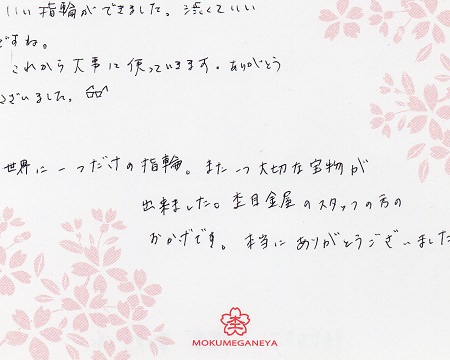 いい指輪ができました。渋くていい
ですね。
これから大事に使っていきます。ありがとう
ございました。
世界に一つだけの指輪。また一つ大切な宝物が
出来ました。杢目金屋のスタッフの方の
おかげです。本当にありがとうございました
杢
MOKUMEGANEYA